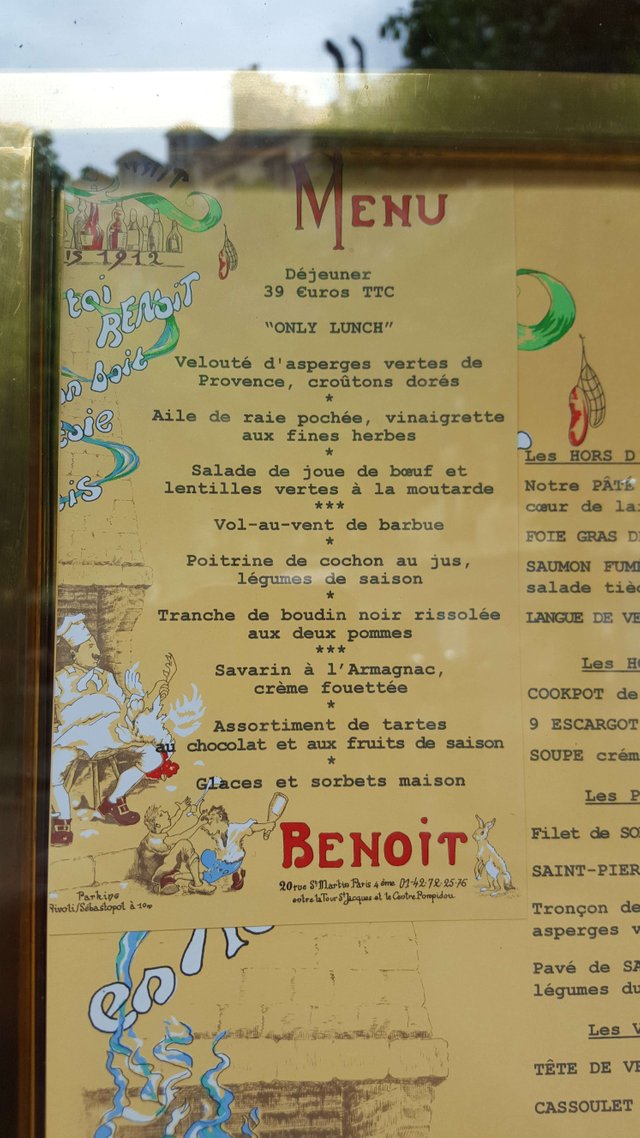 MENU
Déjeuner
39 €uros TTC
"ONLY LUNCH"
Velouté d'asperges vertes de
Provence, croûtons dorés
*
Aile de raie pochée, vinaigrette
aux fines herbes
*
Salade de joue de bœuf et
lentilles vertes à la moutarde
***
Vol-au-vent de barbue
*
Poitrine de cochon au jus,
légumes de saison
*
Tranche de boudin noir rissolée
aux deux pommes
***
Savarin à l'Armagnac,
crème fouettée
*
Assortiment de tartes
au chocolat et aux fruits de saison
*
Glaces et sorbets maison
BENOIT
20 rue St Martin Paris 4ème 01-42-72-25-76
entre la Tour St Jacques et le Centre Pompidou
Parking
Rivoli/Sébastopol à 10m
1912
toi BENOIT
boit
Les HORS D
Notre PÂTÉ
cœur de lai
FOIE GRAS D
SAUMON FUM
salade tiè
LANGUE DE VE
Les H
COOKPOT de
9 ESCARGOT
SOUPE crém
Les P
Filet de SO
SAINT-PIER
Tronçon de
asperges v
Pavé de SA
légumes du
Les V
TÊTE DE VE
CASSOULET
en